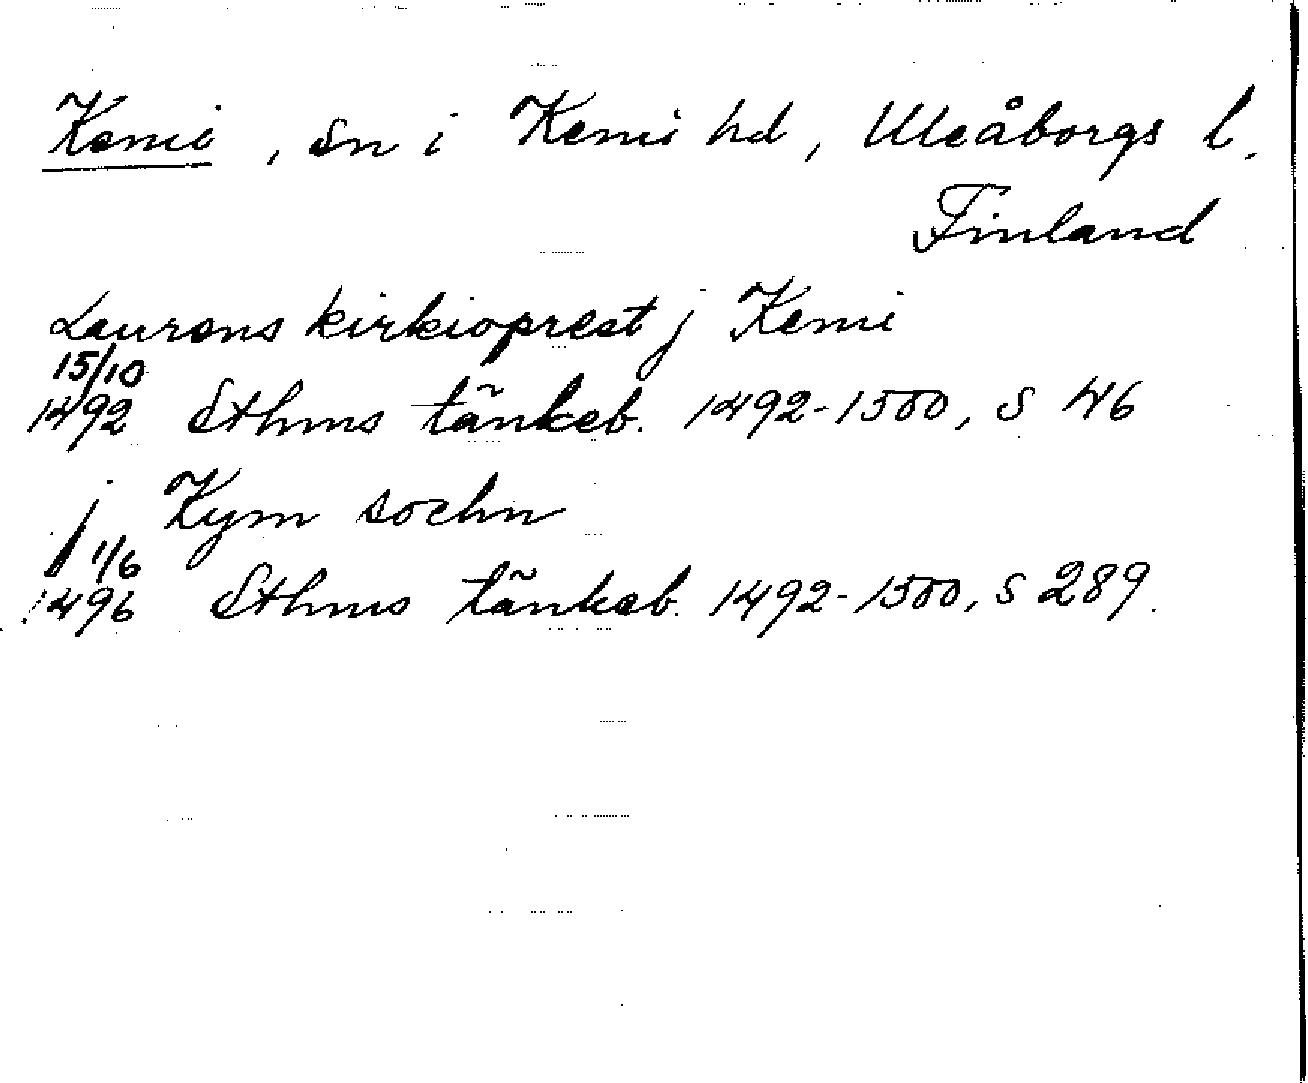 Kemi, sn i Kemi hd, Uleåborgs l.
Finland
Laurens kirkioprest j Kemi
15/10
1492 Sthms tänkeb. 1492-1500, s 46
j Kym sochn
1/6
1496 Sthms tänkeb. 1492-1500, s 289.